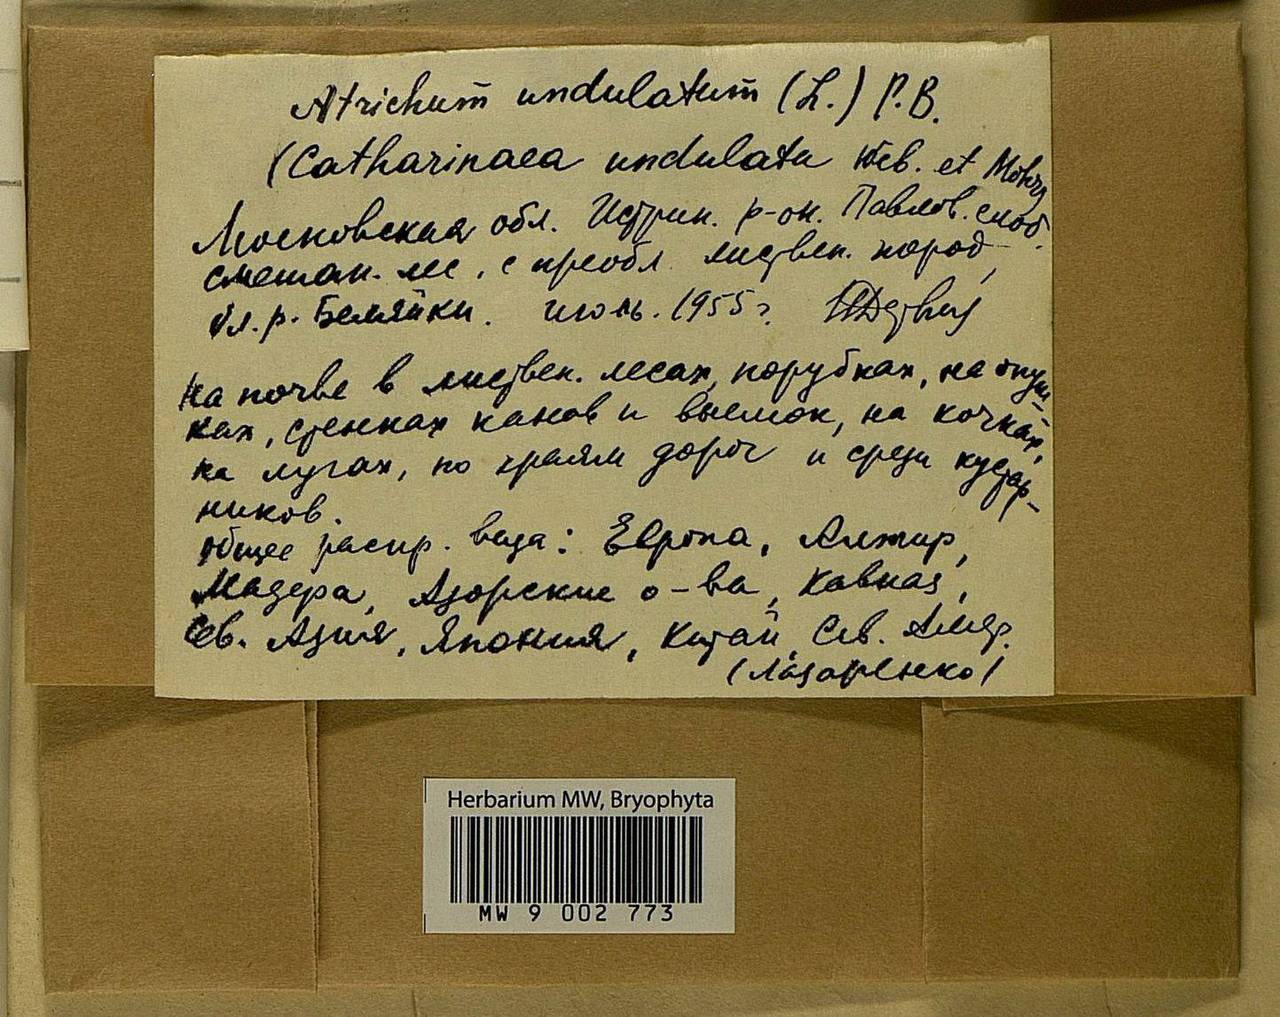 Atrichum undulatum (L.) P.B.
(Catharinaea undulata Web. et Mohr)
Московская обл. Истрин. р-он. Павлов. слоб.
смешан. лес, с преобл. листвен. пород,
бл. р. Беляйки. июль. 1955 г.
На почве в листвен. лесах, порубках, на опуш-
ках, стенках канав и выемок, на кочках,
на лугах, по краям дорог и среди кустар-
ников.
Общее распр. вида: Европа, Алжир,
Мадера, Азорские о-ва, Кавказ,
Сев. Азия, Япония, Китай, Сев. Амер.
(Лазаренко)
Herbarium MW, Bryophyta
MW 9 002 773